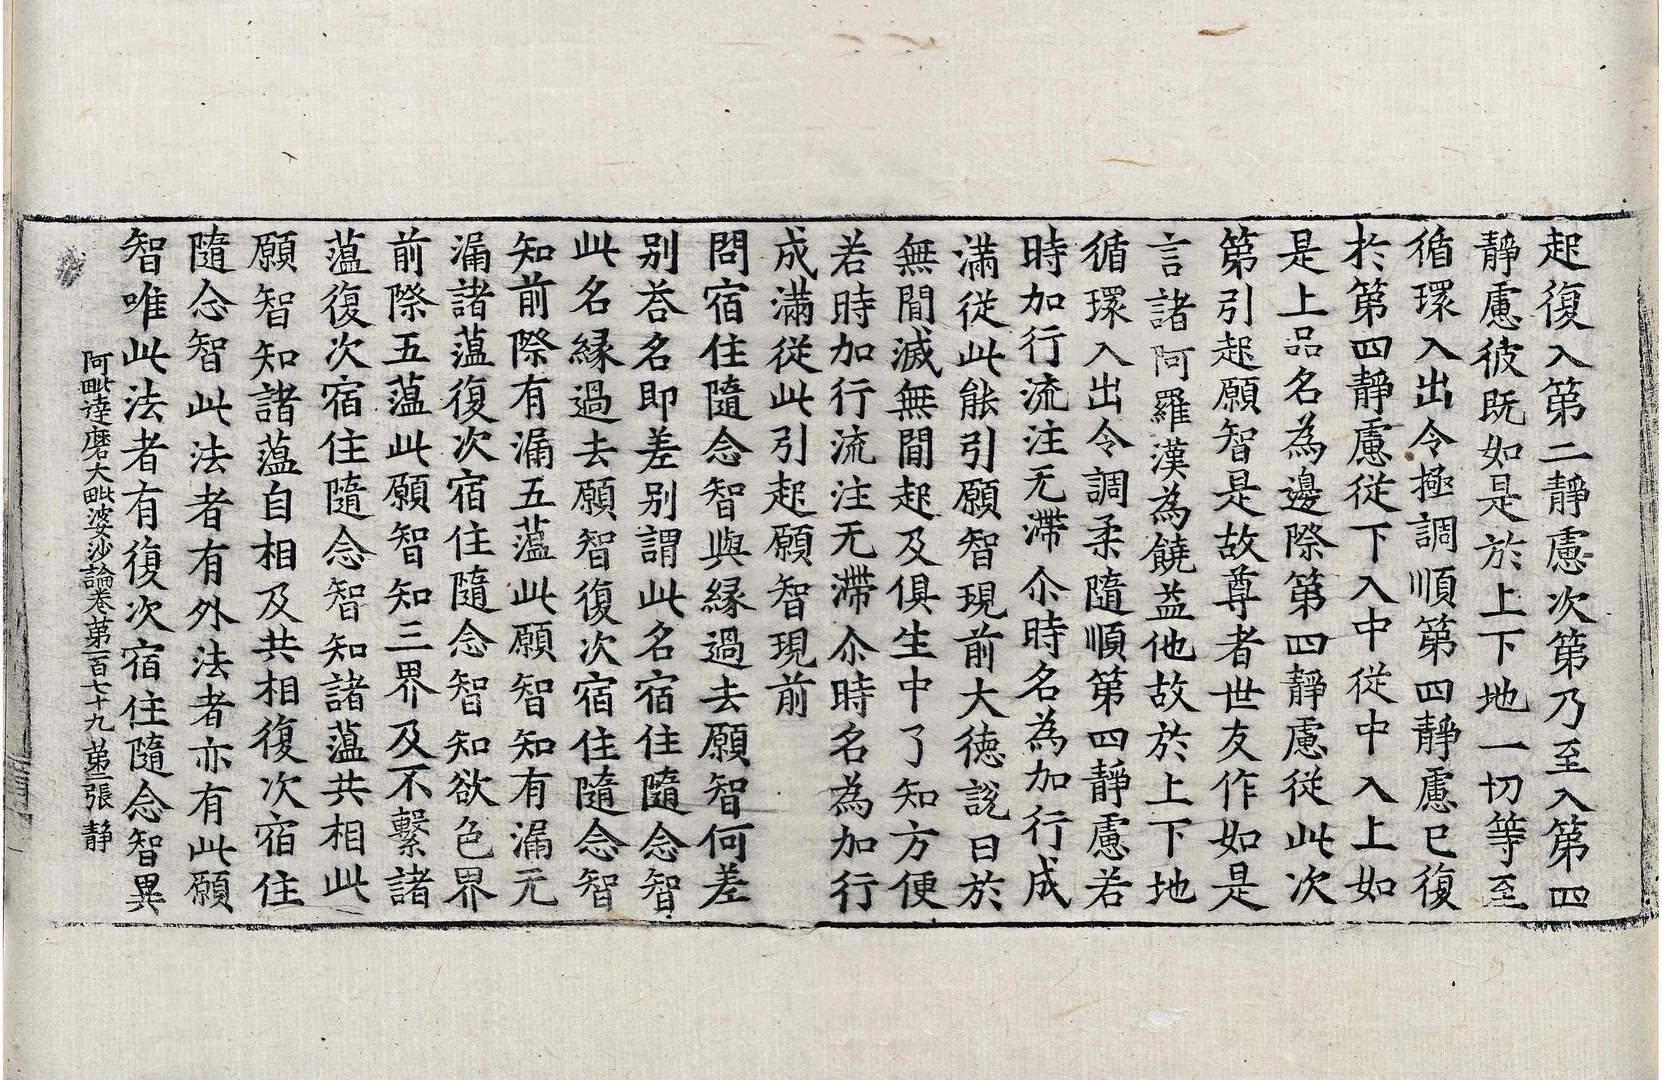 起復入第二靜慮次第乃至入第四
靜慮彼既如是於上下地一切等至
循環入出令極調順第四靜慮已復
於第四靜慮從下入中從中入上如
是上品名為邊際第四靜慮從此次
第引起願智是故尊者世友作如是
言諸阿羅漢為饒益他故於上下地
循環入出令調柔隨順第四靜慮若
時加行流注无滯尒時名為加行成
滿從此能引願智現前大德說曰於
無間滅無間起及俱生中了知方便
若時加行流注无滯尒時名為加行
成滿從此引起願智現前
問宿住隨念智與緣過去願智何差
别荅名即差别謂此名宿住隨念智
此名緣過去願智復次宿住隨念智
知前際有漏五蘊此願智知有漏无
漏諸蘊復次宿住隨念智知欲色界
前際五蘊此願智知三界及不繫諸
蘊復次宿住隨念智知諸蘊共相此
願智知諸蘊自相及共相復次宿住
隨念智此法者有外法者亦有此願
智唯此法者有復次宿住隨念智異
阿毗達磨大毗婆沙論卷第一百七十九 第三張 靜